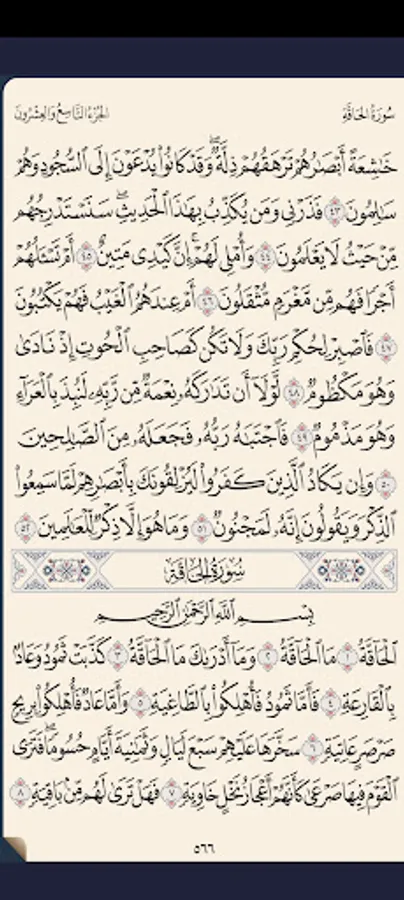 سُورَةُ الحَاقَّةِ الجُزْءُ التَّاسِعُ وَالعِشْرُونَ
خَٰشِعَةً أَبۡصَٰرُهُمۡ تَرۡهَقُهُمۡ ذِلَّةٞۖ وَقَدۡ كَانُواْ يُدۡعَوۡنَ إِلَى ٱلسُّجُودِ وَهُمۡ
سَٰلِمُونَ ٤٣ فَذَرۡنِي وَمَن يُكَذِّبُ بِهَٰذَا ٱلۡحَدِيثِۖ سَنَسۡتَدۡرِجُهُم
مِّنۡ حَيۡثُ لَا يَعۡلَمُونَ ٤٤ وَأُمۡلِي لَهُمۡۚ إِنَّ كَيۡدِي مَتِينٌ ٤٥ أَمۡ تَسۡـَٔلُهُمۡ
أَجۡرٗا فَهُم مِّن مَّغۡرَمٖ مُّثۡقَلُونَ ٤٦ أَمۡ عِندَهُمُ ٱلۡغَيۡبُ فَهُمۡ يَكۡتُبُونَ
٤٧ فَٱصۡبِرۡ لِحُكۡمِ رَبِّكَ وَلَا تَكُن كَصَاحِبِ ٱلۡحُوتِ إِذۡ نَادَىٰ
وَهُوَ مَكۡظُومٞ ٤٨ لَّوۡلَآ أَن تَدَٰرَكَهُۥ نِعۡمَةٞ مِّن رَّبِّهِۦ لَنُبِذَ بِٱلۡعَرَآءِ
وَهُوَ مَذۡمُومٞ ٤٩ فَٱجۡتَبَٰهُ رَبُّهُۥ فَجَعَلَهُۥ مِنَ ٱلصَّٰلِحِينَ
٥٠ وَإِن يَكَادُ ٱلَّذِينَ كَفَرُواْ لَيُزۡلِقُونَكَ بِأَبۡصَٰرِهِمۡ لَمَّا سَمِعُواْ
ٱلذِّكۡرَ وَيَقُولُونَ إِنَّهُۥ لَمَجۡنُونٞ ٥١ وَمَا هُوَ إِلَّا ذِكۡرٞ لِّلۡعَٰلَمِينَ ٥٢
سُورَةُ الحَاقَّةِ
بِسۡمِ ٱللَّهِ ٱلرَّحۡمَٰنِ ٱلرَّحِيمِ
ٱلۡحَآقَّةُ ١ مَا ٱلۡحَآقَّةُ ٢ وَمَآ أَدۡرَىٰكَ مَا ٱلۡحَآقَّةُ ٣ كَذَّبَتۡ ثَمُودُ وَعَادُۢ
بِٱلۡقَارِعَةِ ٤ فَأَمَّا ثَمُودُ فَأُهۡلِكُواْ بِٱلطَّاغِيَةِ ٥ وَأَمَّا عَادٞ فَأُهۡلِكُواْ بِرِيحٖ
صَرۡصَرٍ عَاتِيَةٖ ٦ سَخَّرَهَا عَلَيۡهِمۡ سَبۡعَ لَيَالٖ وَثَمَٰنِيَةَ أَيَّامٍ حُسُومٗاۖ فَتَرَى
ٱلۡقَوۡمَ فِيهَا صَرۡعَىٰ كَأَنَّهُمۡ أَعۡجَازُ نَخۡلٍ خَاوِيَةٖ ٧ فَهَلۡ تَرَىٰ لَهُم مِّنۢ بَاقِيَةٖ ٨
٥٦٦